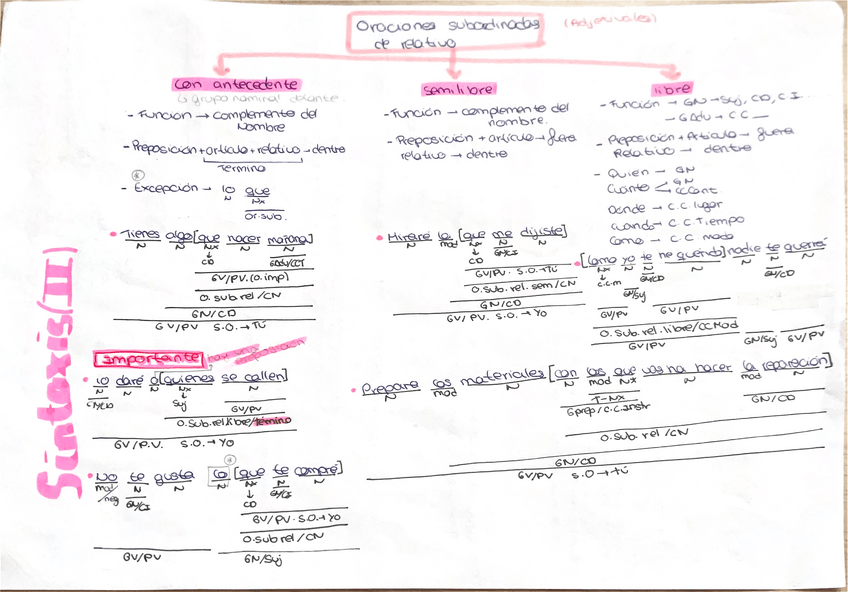 Oraciones subordinadas (Adjetivales)
de relativo
Sintaxis (II)
con antecedente
↳ grupo nominal delante.
- Función → complemento del
Nombre
- Preposición + artículo + relativo → dentro
Término
*
- Excepción → lo que
N Nx
Or.sub.
• Tienes algo [que hacer mañana]
N N Nx N N
↓
CD GAdv/CCT
GV/PV.(O.imp)
O.sub.rel/CN
GN/CD
GV/PV S.O.→ Tú
Importante
hay una preposición
• lo daré a [quienes se callen]
N N N Nx N
GN/CD ↓
Suj GV/PV
O.Sub.rel.libre/término
GV/P.V. S.O. → Yo
*
• No te gusta lo [que te compré]
mod/neg N N N Nx N N
GN/CI ↓ GN/CI
CD
GV/PV. S.O.→ Yo
O.sub rel/CN
GV/PV GN/Suj
semilibre
- Función → complemento del
nombre.
- Preposición + artículo → fuera
relativo → dentro
• Hiraré lo [que me dijiste]
N mod Nx N N
↓ GN/CI
CD
GV/PV. S.O.→ Tú
O.sub.rel.sem/CN
GN/CD
GV/PV. S.O. → Yo
libre
- Función → GN → Suj, CD, C I...
→ GAdv → CC __
- Preposición + Artículo → fuera
Relativo → dentro
- Quien → GN
Cuanto < GN
CCCant.
Donde → C.C. lugar
Cuando → C C.Tiempo
Como → C.C modo
• [Como yo te he querido] nadie te querrá
Nx N N N N N N
↓ GN/CD GN/CD
c.c.m GN/Suj
GV/PV GV/PV
O.Sub.rel.libre/CCMod
GV/PV GN/Suj GV/PV
• Prepara los materiales [con los que vas ha hacer la reparación]
N mod N N mod Nx N mod N
T-Nx GN/CD
Gprep/c.c.instr
O.sub.rel/CN
GN/CD
GV/PV S.O → tú